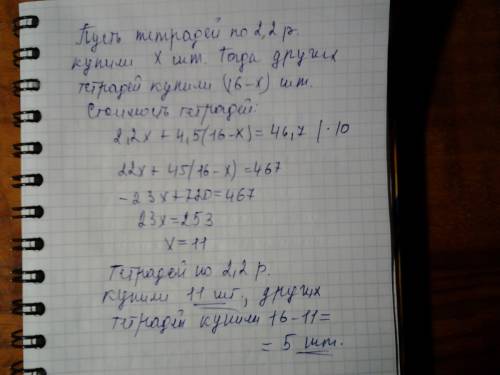 Пусть тетрадей по 2,2 р.
купили х шт. Тогда других
тетрадей купили (16-х) шт.
Стоимость тетрадей:
2,2х + 4,5(16-х) = 46,7 | · 10
22х + 45(16-х) = 467
-23х + 720 = 467
23х = 253
х = 11
Тетрадей по 2,2 р.
купили 11 шт, других
тетрадей купили 16-11 =
= 5 шт.